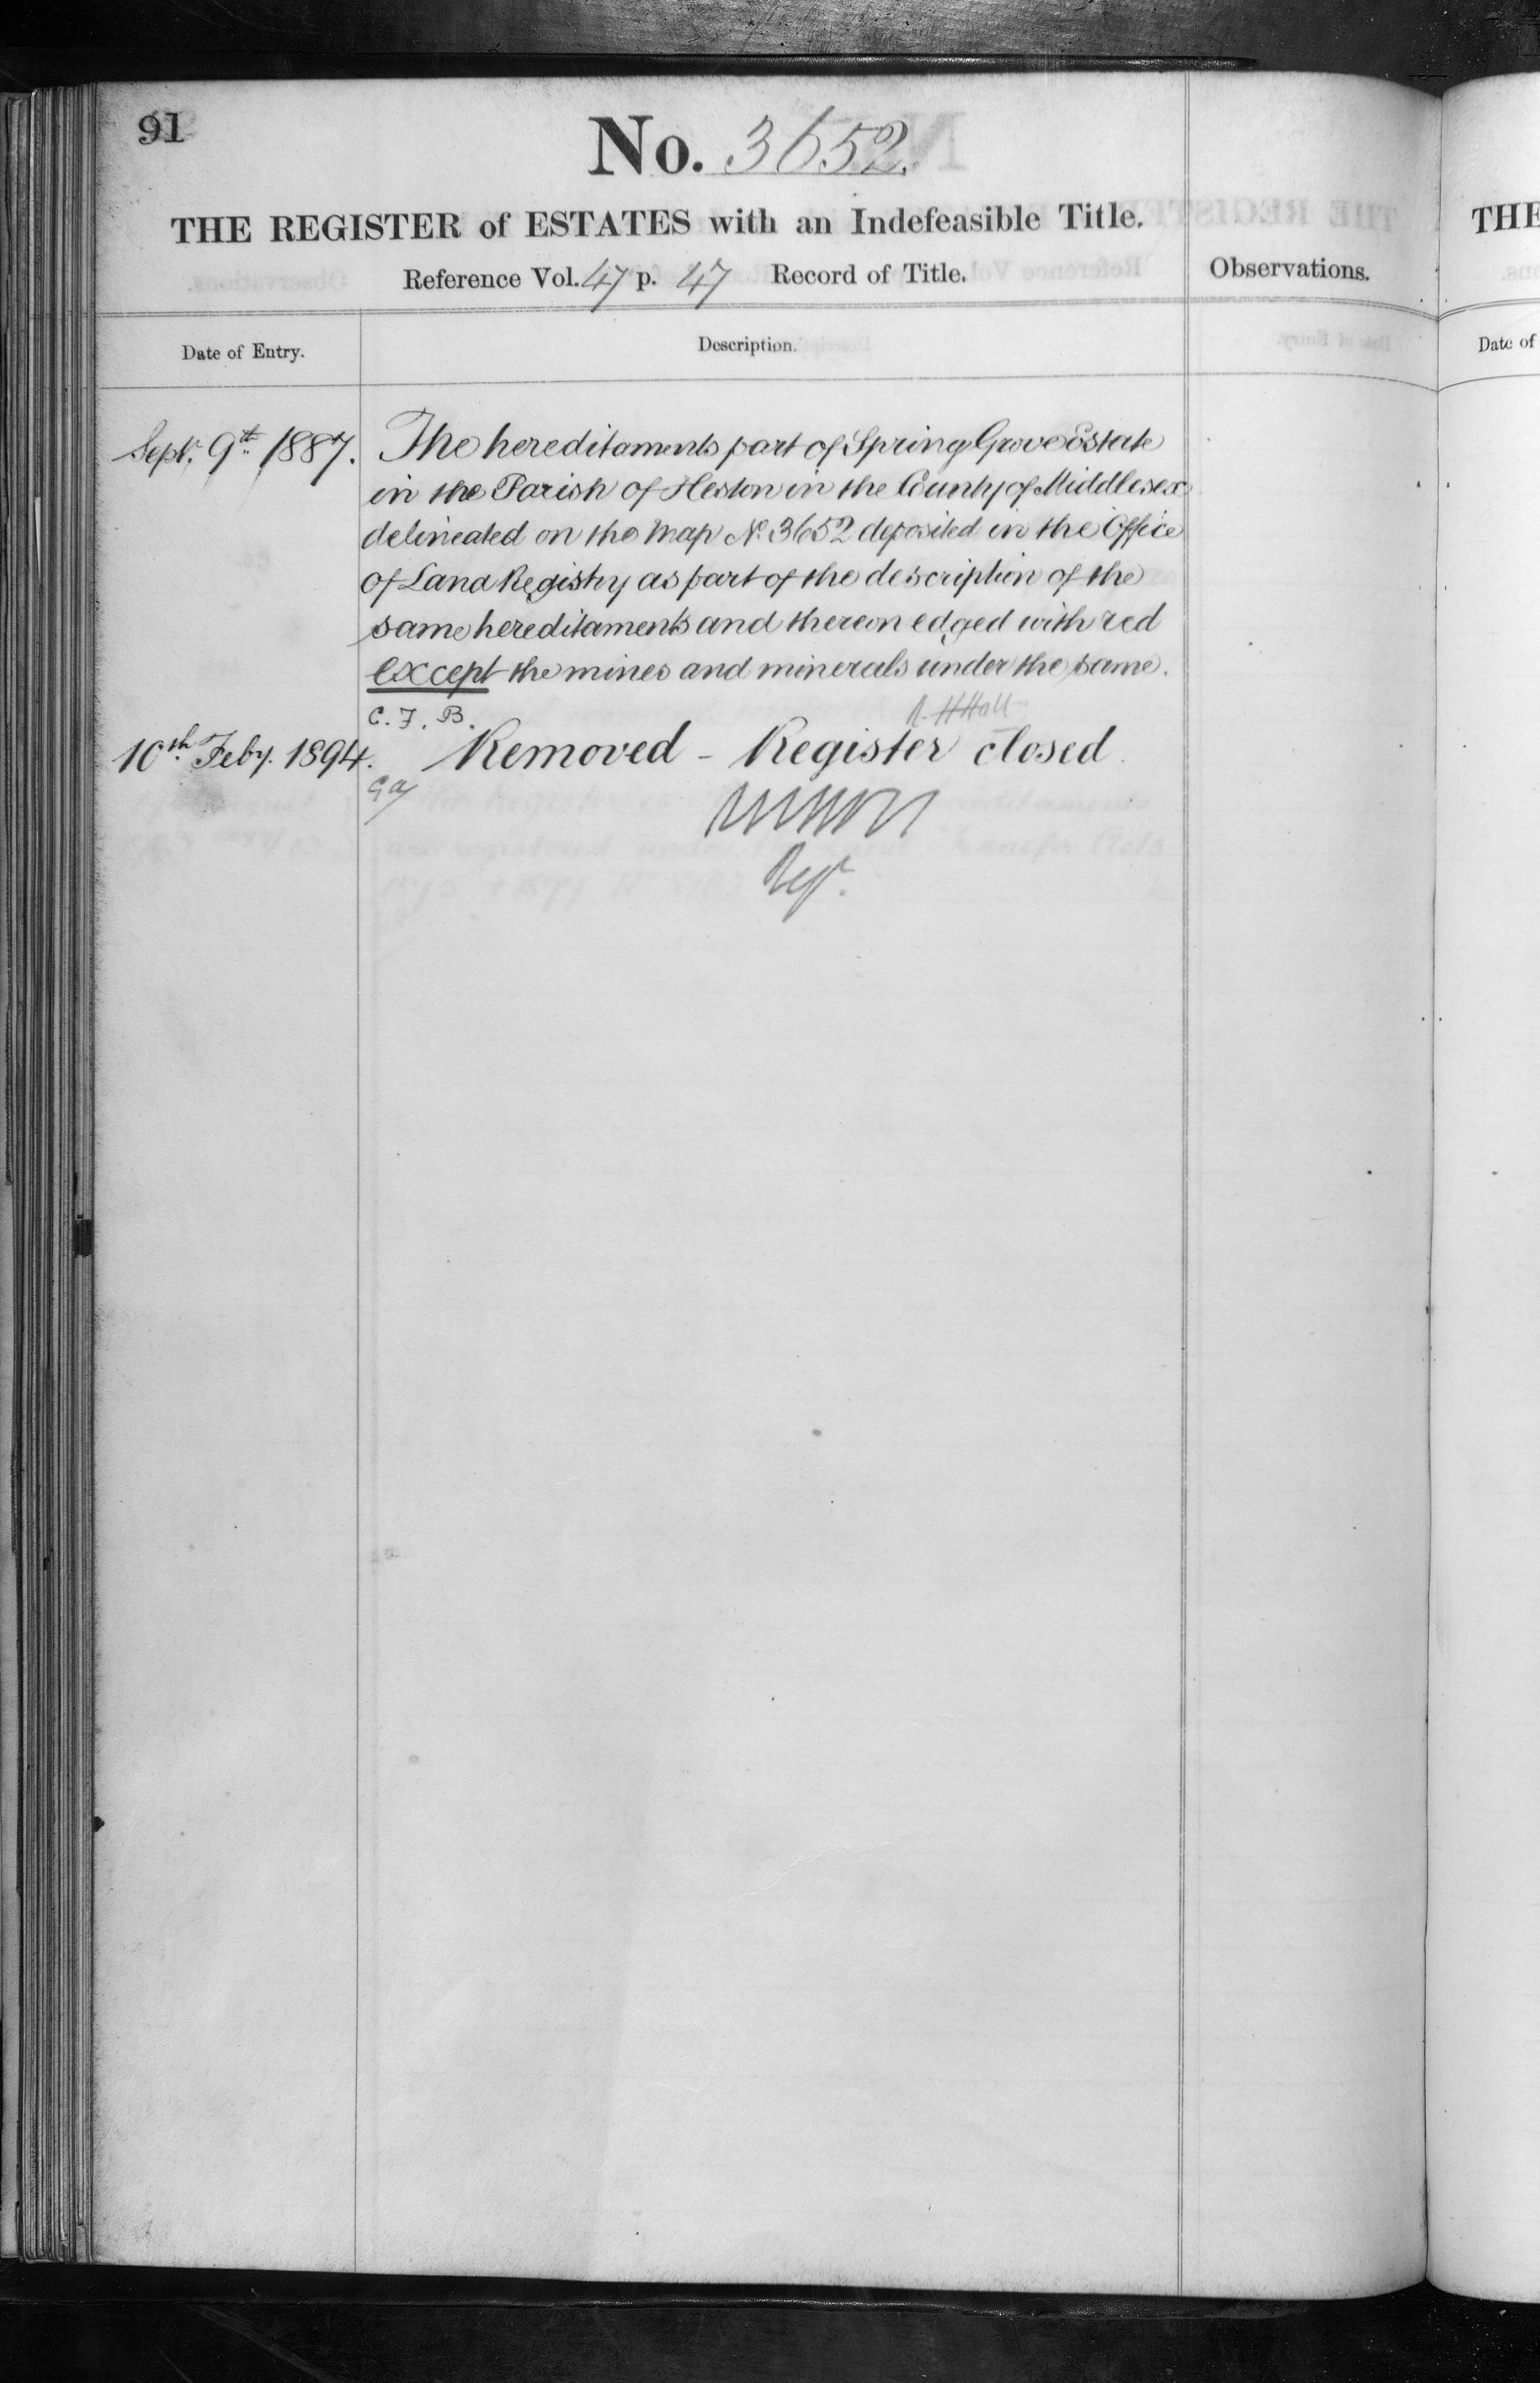 91
No. 3652.
THE REGISTER of ESTATES with an Indefeasible Title.
Reference Vol. 47 p. 47 Record of Title.
Observations.
Date of Entry.
Description.
Sept. 9th 1887.
The hereditaments part of Spring Grove Estate
in the Parish of Heston in the County of Middlesex
delineated on the Map No. 3652 deposited in the Office
of Land Registry as part of the description of the
same hereditaments and thereon edged with red
except the mines and minerals under the same.
C. F. B.
R. H Holt
10th Feby. 1894.
Removed - Register closed.
Regr.
THE
Date of